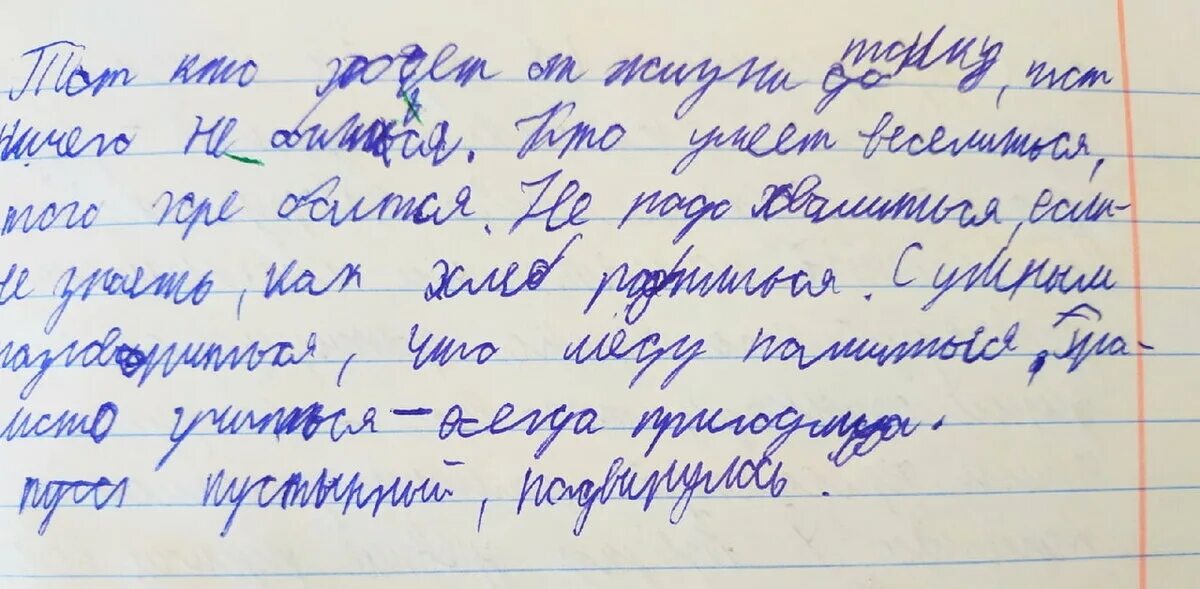 Тот кто ходет от жизни до толку, тот
ничего не боится. Кто умеет веселиться,
того хре боится. Не надо хвалиться, если
не знаеть, как хлеб родиться. С умным
разговориться, что меду напиться. Гра-
мото учиться – всегда пригодица.
пусы пустынный, подвинулось.